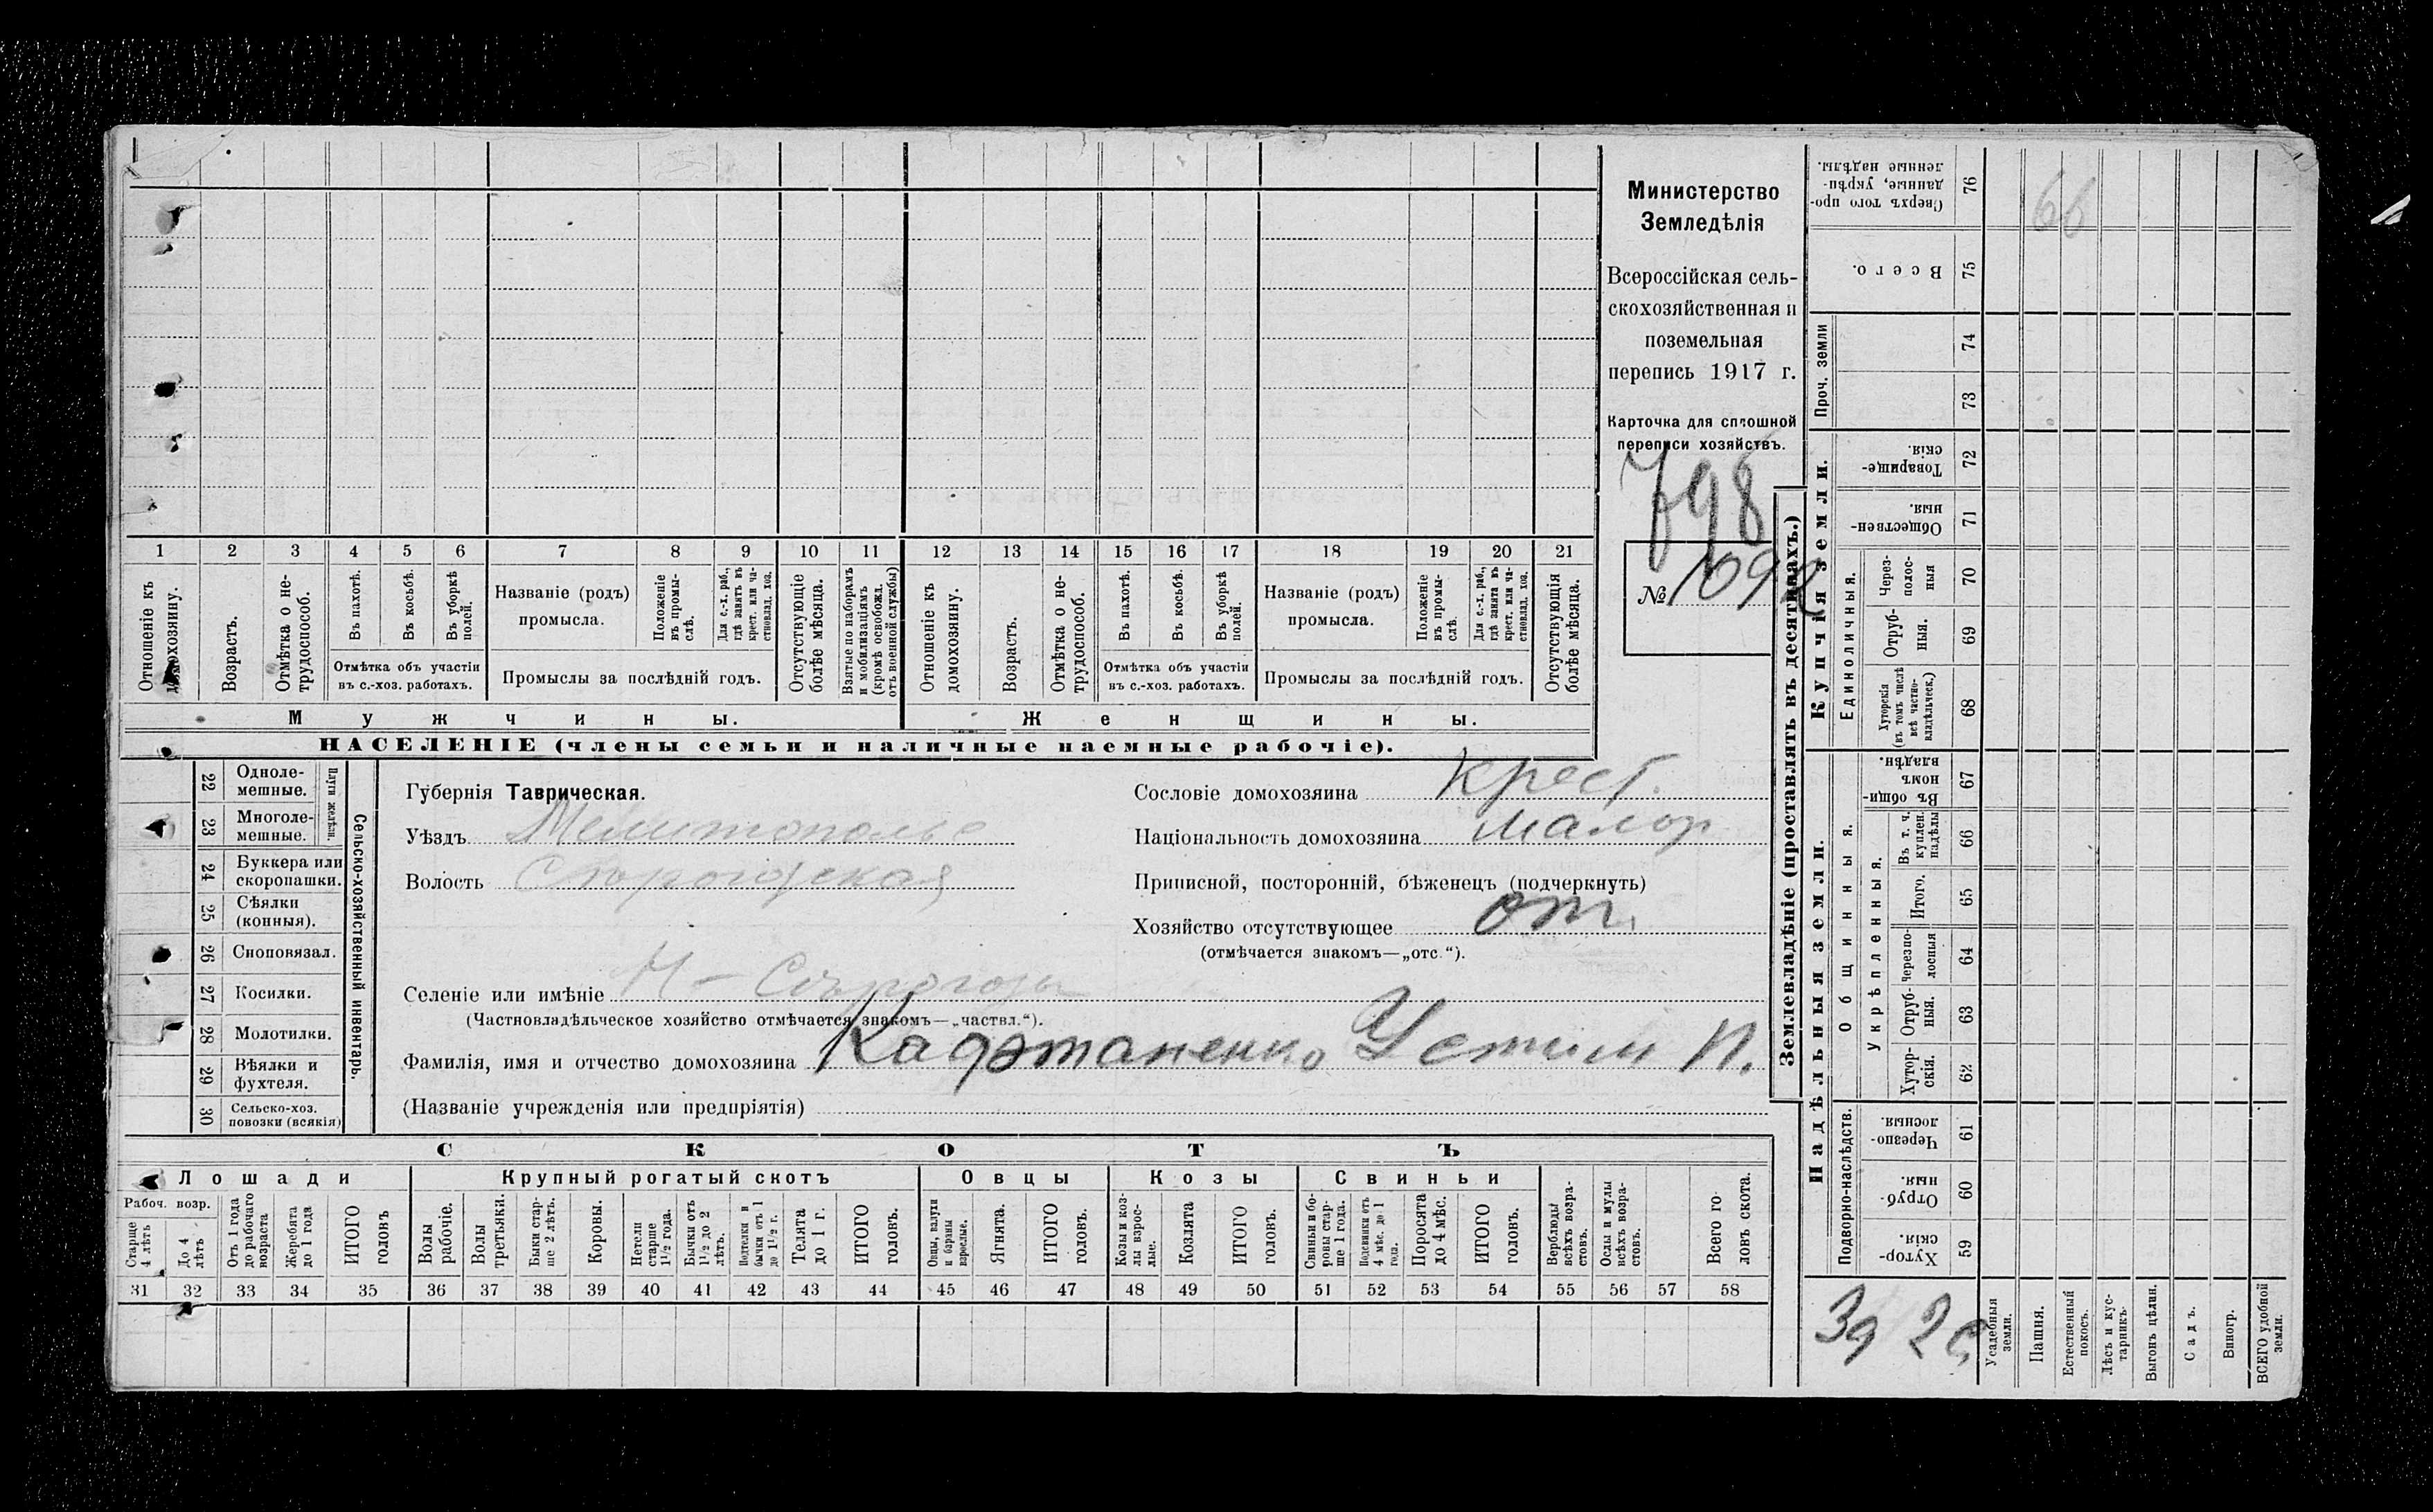 Министерство
Земледѣлія
Всероссійская сель-
скохозяйственная и
поземельная
перепись 1917 г.
Карточка для сплошной
переписи хозяйствъ.
798
№ 1092
1 2 3 4 5 6 7 8 9 10 11 12 13 14 15 16 17 18 19 20 21
Отношеніе къ домохозяину.
Возрастъ.
Отмѣтка о не-трудоспособ.
Въ пахотѣ.
Въ косьбѣ.
Въ уборкѣ полей.
Отмѣтка объ участіи
въ с.-хоз. работахъ.
Названіе (родъ)
промысла.
Положеніе въ промы-слѣ.
Для с.-х. раб., гдѣ занятъ въ крест. или ча-стновлад. хоз.
Промыслы за послѣдній годъ.
Отсутствующіе болѣе мѣсяца.
Взятые по наборамъ и мобилизаціямъ (кромѣ освобожд. отъ военной службы)
Отношеніе къ домохозяину.
Возрастъ.
Отмѣтка о не-трудоспособ.
Въ пахотѣ.
Въ косьбѣ.
Въ уборкѣ полей.
Отмѣтка объ участіи
въ с.-хоз. работахъ.
Названіе (родъ)
промысла.
Положеніе въ промы-слѣ.
Для с.-х. раб., гдѣ занята въ крест. или ча-стновлад. хоз.
Промыслы за послѣдній годъ.
Отсутствующія болѣе мѣсяца.
Мужчины.
Женщины.
НАСЕЛЕНІЕ (члены семьи и наличные наемные рабочіе).
22 Одноле-мешные.
23 Многоле-мешные.
Плуги желѣзн.
24 Буккера или скоропашки.
25 Сѣялки (конныя).
26 Сноповязал.
27 Косилки.
28 Молотилки.
29 Вѣялки и фухтеля.
30 Сельско-хоз. повозки (всякія)
Сельско-хозяйственный инвентарь.
Губернія Таврическая.
Уѣздъ Мелитополье
Волость
Селеніе или имѣніе Н-Сѣрогозы
(Частновладѣльческое хозяйство отмѣчается знакомъ—„частвл.“).
Фамилія, имя и отчество домохозяина Кафтаненко Устим П.
(Названіе учрежденія или предпріятія)
Сословіе домохозяина Крест.
Національность домохозяина Малор.
Приписной, посторонній, бѣженецъ (подчеркнуть)
Хозяйство отсутствующее
(отмѣчается знакомъ—„отс.“).
СКОТЪ
Лошади
Крупный рогатый скотъ
Овцы
Козы
Свиньи
Рабоч. возр.
Старше 4 лѣтъ
До 4 лѣтъ
Отъ 1 года до рабочаго возраста
Жеребята до 1 года
ИТОГО головъ
Волы рабочіе.
Волы третьяки.
Быки стар-ше 2 лѣтъ.
Коровы.
Нетели старше 1½ года.
Бычки отъ 1½ до 2 лѣтъ.
Подтелки и бычки отъ 1 до 1½ г.
Телята до 1 г.
ИТОГО головъ.
Овцы, валухи и бараны взрослые.
Ягнята.
ИТОГО головъ.
Козы и коз-лы взрос-лые.
Козлята
ИТОГО головъ.
Свиньи и бо-ровы стар-ше 1 года.
Подсвинки отъ 4 мѣс. до 1 года.
Поросята до 4 мѣс.
ИТОГО головъ.
Верблюды всѣхъ возра-стовъ.
Ослы и мулы всѣхъ возра-стовъ.
Всего го ловъ скота.
31 32 33 34 35 36 37 38 39 40 41 42 43 44 45 46 47 48 49 50 51 52 53 54 55 56 57 58
Землевладѣніе (проставлять въ десятинахъ.)
Купчія земли.
Надѣльныя земли.
Сверхъ того про-данные, укрѣп-ленные надѣлы. 76
66
Всего. 75
Проч. земли 74 73
Товарище-скія. 72
Обществен-ныя. 71
Единоличныя.
Через-полос-ныя 70
Отруб-ныя. 69
Хуторскія (въ томъ числѣ всѣ частно-владѣльческ.) 68
Общинныя.
Въ общин-номъ владѣн. 67
Укрѣпленныя.
Въ т. ч. куплен. надѣлы 66
Итого. 65
Черезпо-лосныя 64
Отруб-ныя. 63
Хутор-скія. 62
Подворно-наслѣдств.
Черезпо-лосныя. 61
Отруб-ныя. 60
Хутор-скія. 59
Усадебныя земли.
Пашня.
Естественный покосъ.
Лѣсъ и кус-тарникъ.
Выгонъ цѣлин.
Садъ.
Виногр.
ВСЕГО удобной земли.